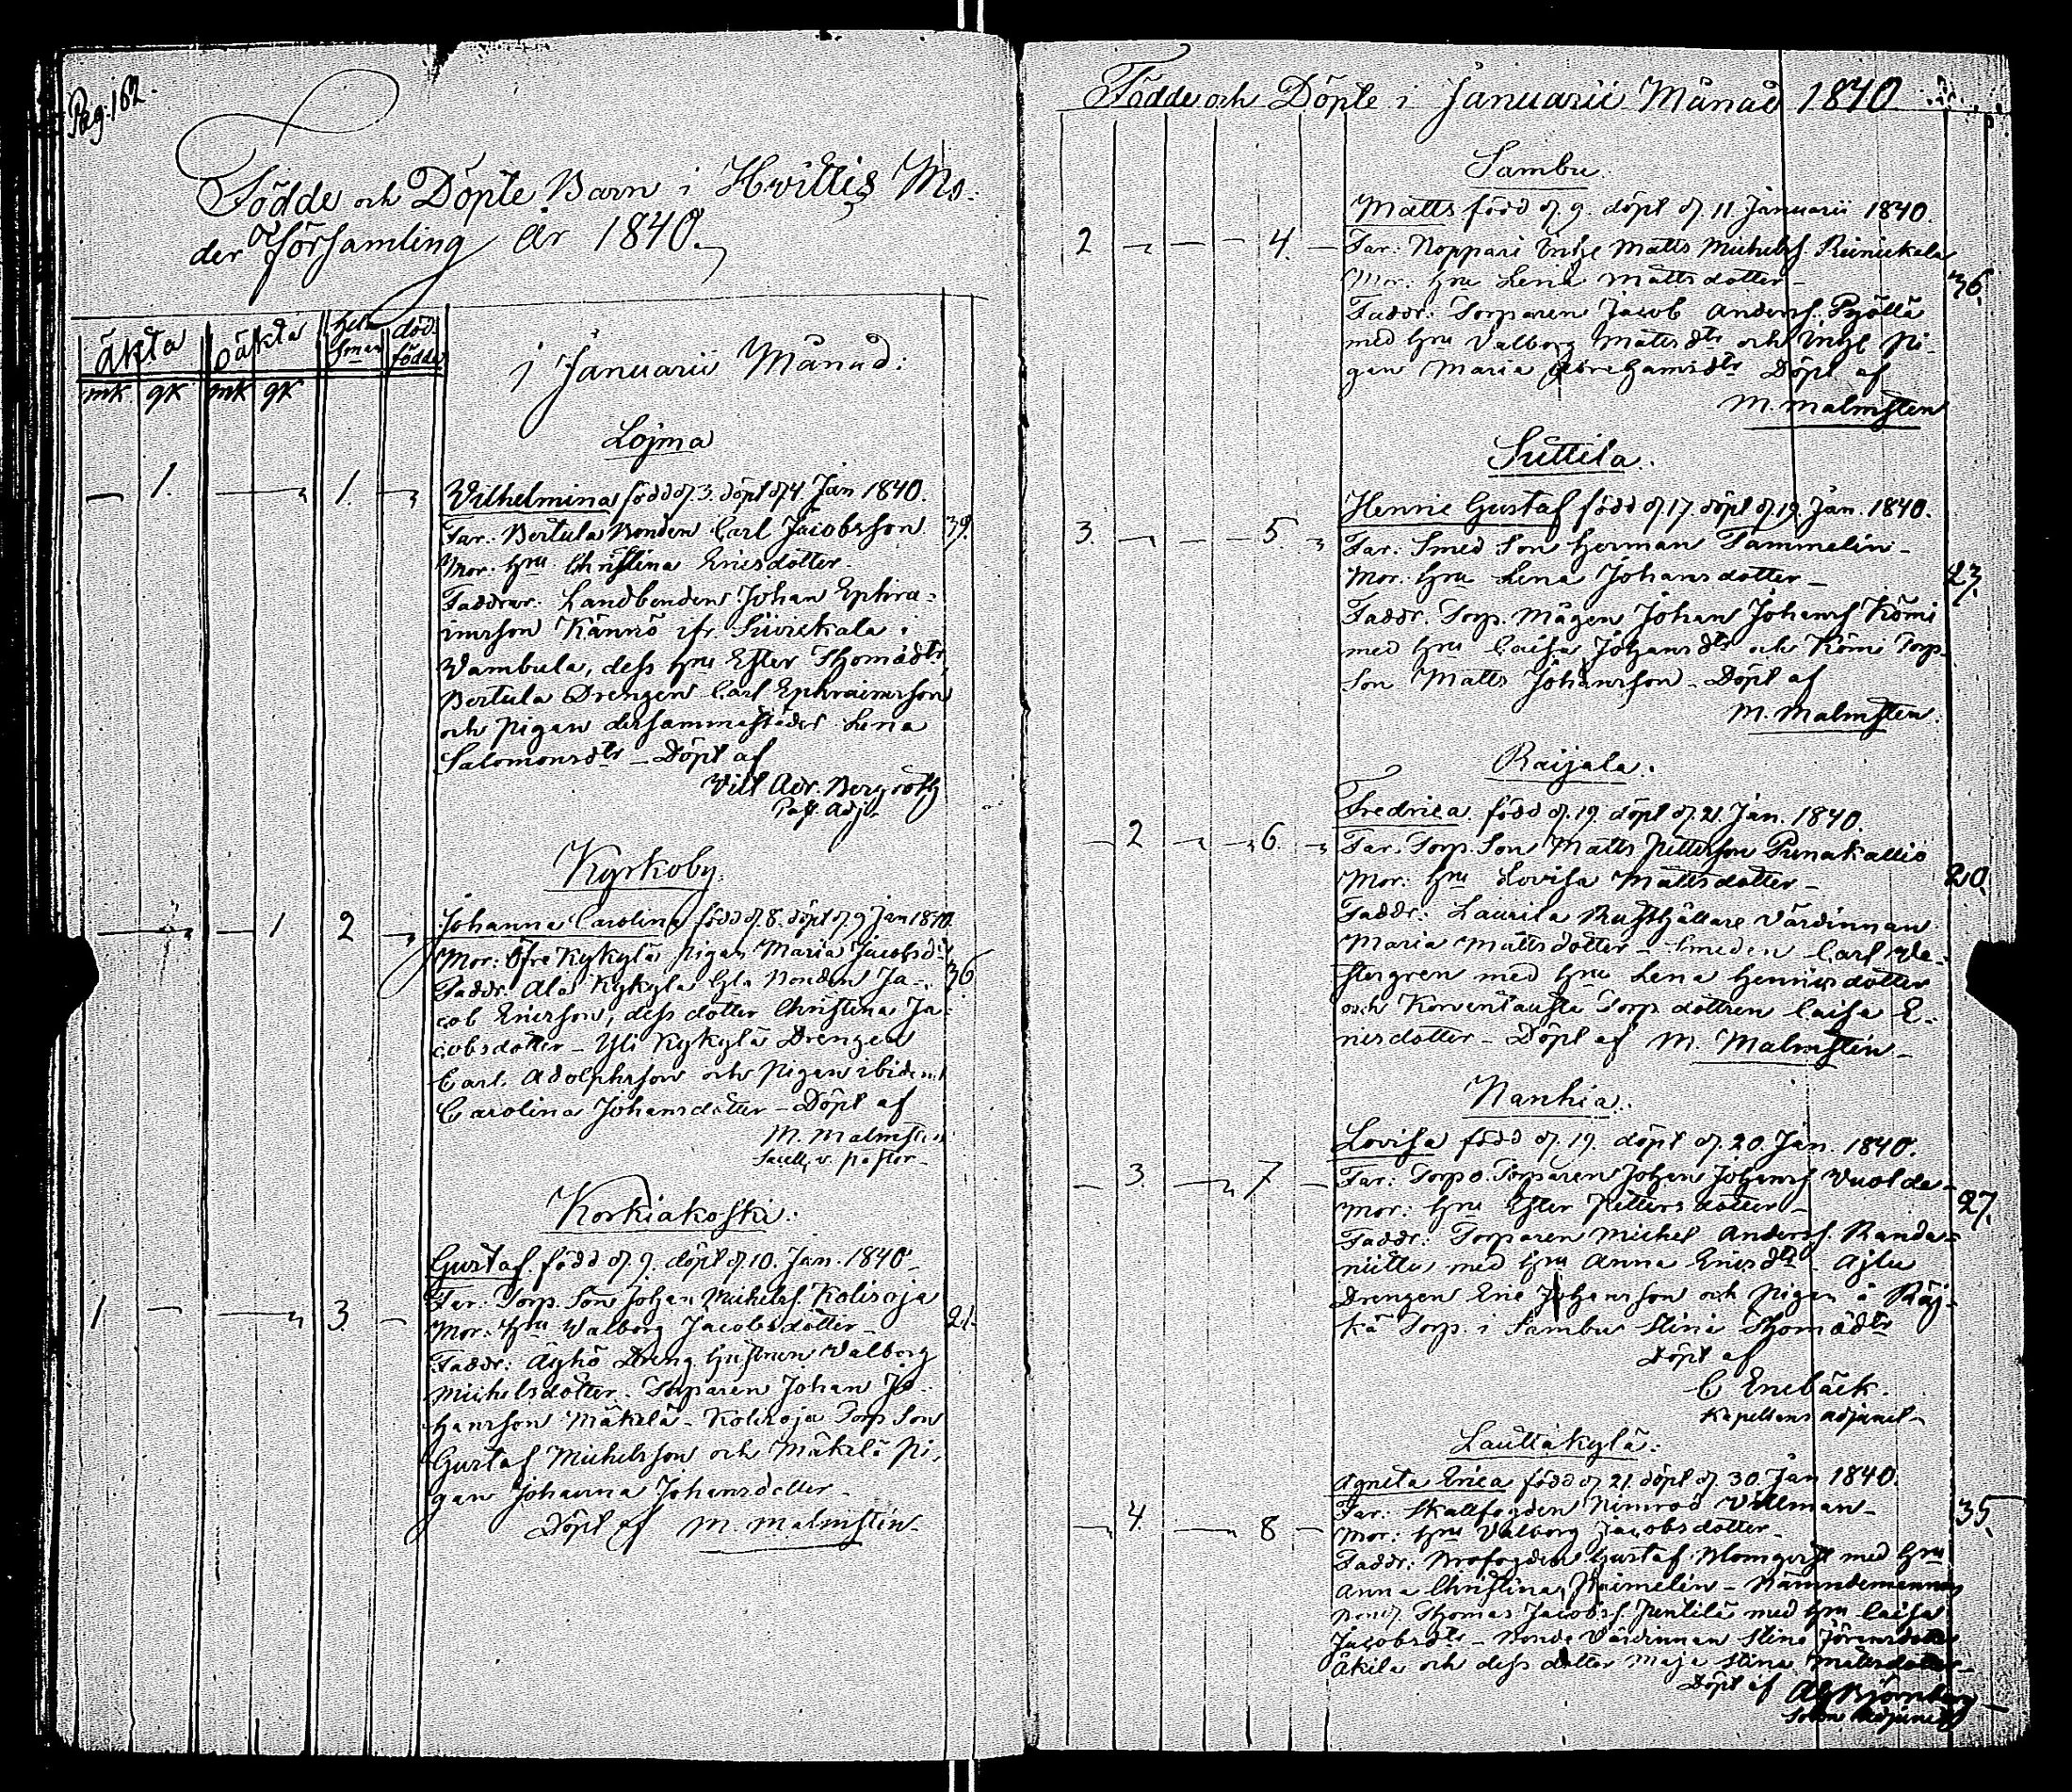 Pag. 162.
Födde och Döpte Barn i Hvittis Mo-
der Församling År 1840.
äkta oäkta död-
födde
mk qk mk qk
i Januarii Månad:
Lojma
1. 1.
Wilhelmina född d. 3. döpt d. 4. Jan 1840.
Far: Bertula Bonden Carl Jacobsson 39.
Mor: Hru Christina Ericsdotter
Faddrar: Landbonden Johan Ephra-
imsson Kännö ifr.
Vambula, dess hru Ester Thomasdtr,
Bertula Drengen Carl Ephraimsson
och Pigan dersammastädes Lena
Salomonsdtr – Döpt af
Vilh Adr. Bergroth
Past. Adj.
Kyrkoby.
1 2
Johanna Carolina född d. 8. döpt d. 9 Jan 1840.
Mor: Öfre Kykylä Pigan Maria Jacobsdtr 36.
Faddr: Ala Kykylä Bonden Ja-
cob Ericsson, dess dotter Christina Ja-
cobsdotter – Yli Kykylä Drengen
Carl Adolphsson och Pigan ibidem
Carolina Johansdotter – Döpt af
M. Malmsten
Sacell. v. Pastor
Korkiakoski:
Gustaf född d. 9. döpt d. 10. Jan. 1840
1 3.
Far: Torp. Son Johan Michelss. Kolisoja 21.
Mor: Hru Walborg Jacobsdotter –
Faddr: Äyhö Dreng hustrun Valborg
Michelsdotter – Torparen Johan Jo-
hansson Mäkelä – Kolisoja Torp Son
Gustaf Michelsson och Mäkelä Pi-
gan Johanna Johansdotter –
Döpt af M. Malmsten
Födde och Döpte i Januarii Månad 1840
Sambu.
Matts född d. 9. döpt d. 11. Januarii 1840.
2 4.
Far: Noppari Inhs Matts Michelss. Reinickala
Mor: hru Lena Mattsdotter – 36.
Faddr: Torparen Jacob Anderss. Pyöllä
med hru Valborg Mattsdtr och Inhs Pi-
gan Maria Abrahamsdtr Döpt af
M. Malmsten
Suttila.
Henric Gustaf född d. 17 döpt d. 19. Jan. 1840.
3. 5.
Far: Smed Son Herman Tammelin –
Mor: hru Lena Johansdotter – 23.
Faddr: Torp. Mågen Johan Johanss Kömi
med hru Caisa Johansdtr och Kömi Torp.
Son Matts Johansson – Döpt af
M. Malmsten.
Raijala.
Fredrica född d. 19. döpt d. 21. Jan. 1840.
2 6.
Far: Torp. Son Matts Pettersson Punakallio
Mor: hru Lovisa Mattsdotter – 20.
Faddr: Laurila Rusthållare Värdinnan
Maria Mattsdotter – Smeden Carl We-
stergren med hru Lena Henricsdotter
och Korventausta Torp. dottren Caisa E-
ricsdotter – Döpt af M. Malmsten –
Nanhia.
Lovisa född d. 19. döpt d. 20. Jan. 1840.
3. 7
Far: Torparen Johan Johanss Vuolde –
Mor: hru Ester Pettersdotter – 27.
Faddr: Torparen Michel Anderss. Randa-
niittu med hru Anna Ericsdtr – Ajlu
Drengen Eric Johansson och Pigan å Räj-
kä Torp. i Sambu Stina Thomasdtr
Döpt af
C Enebäck.
Kapellans adjunct –
Lauttakylä.
Agneta Erica född d. 21. döpt d. 30. Jan 1840.
4. 8
Far: Skallfogden Nimrod Villman – 35.
Mor: hru Valborg Jacobsdotter –
Faddr: Brofogden Gustaf Blomqvist med hru
Anna Christina Heimelin – Nämndemannen
Bond. Thomas Jacobss. Penttilä med hru Caisa
Jacobsdtr – Bonde Värdinnan Stina Jöransdotter
Äkilä och dess dotter Maja Stina Mattsdotter –
Döpt af Björnberg
Adjunct